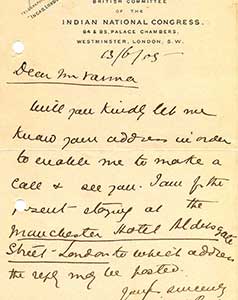 BRITISH COMMITTEE
OF THE
INDIAN NATIONAL CONGRESS.
84 & 85, PALACE CHAMBERS,
WESTMINSTER, LONDON, S.W.
13/6/05
Dear Mr Varma
Will you kindly let me
know your address in order
to enable me to make a
call & see you. I am for the
present staying at the
Manchester Hotel Aldersgate
Street - London to which address
the reply may be posted.
Yours sincerely